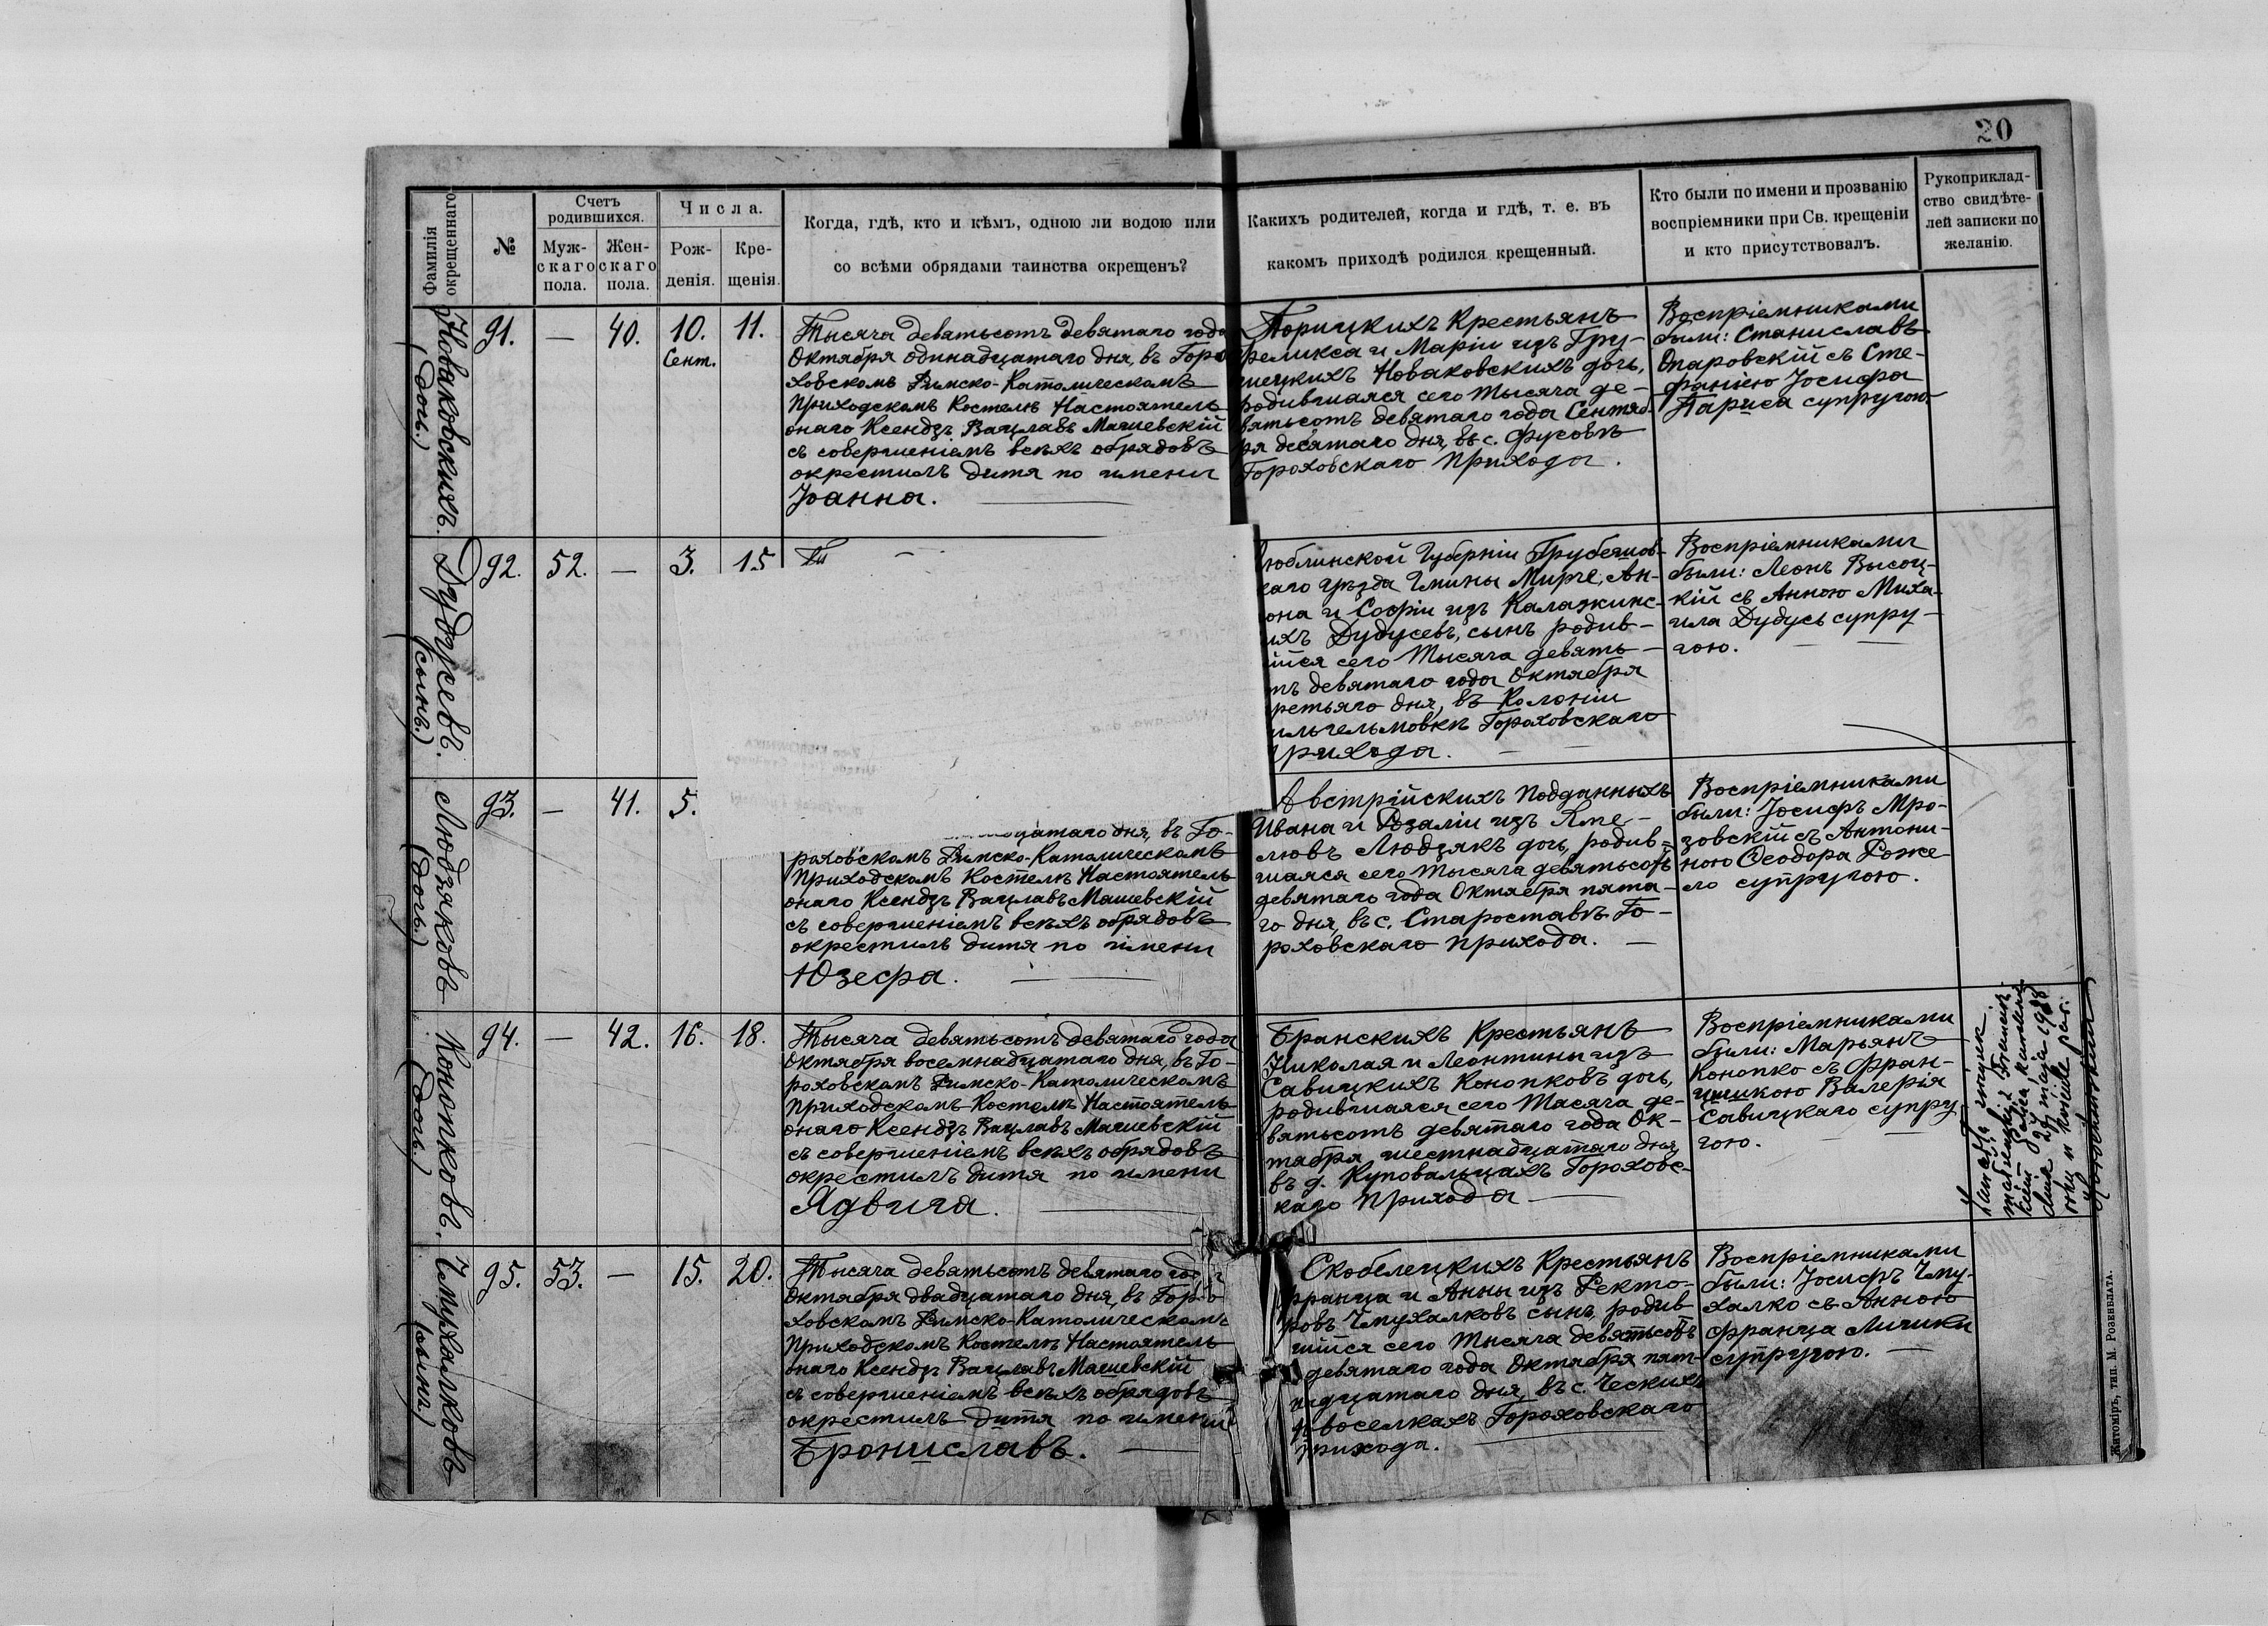 20
Фамилія
окрещеннаго
№
Счетъ
родившихся.
Муж-
скаго
пола.
Жен-
скаго
пола.
Числа.
Рож-
денія.
Кре-
щенія.
Когда, гдѣ, кто и кѣмъ, одною ли водою или
со всѣми обрядами таинства окрещенъ?
Какихъ родителей, когда и гдѣ, т. е. въ
какомъ приходѣ родился крещенный.
Кто были по имени и прозванію
воспріемники при Св. крещеніи
и кто присутствовалъ.
Рукоприклад-
ство свидѣте-
лей записки по
желанію.
Новаковскихъ.
(дочь.)
91.
—
40.
10.
Сент.
11.
Тысяча девятьсотъ девятаго года
Октября одинадцатаго дня, въ Горо
ховскомъ Римско-Католическомъ
Приходскомъ Костелѣ Настоятель
онаго Ксендзъ Вацлавъ Машевскій
съ совершеніемъ всѣхъ обрядовъ
окрестилъ дитя по имени
Іоанна.
Торицкихъ Крестьянъ
Феликса и Маріи изъ Гру-
шецкихъ Новаковскихъ дочь,
родившаяся сего Тысяча де-
вятьсотъ девятаго года Сентяб-
ря десятаго дня, въ с. Фусовѣ
Гороховскаго Прихода.
Воспріемниками
были: Станиславъ
Опаровскій съ Сте-
фаніею Іосифа
Париса супругою.
Дудусевъ.
(сынъ.)
92.
52.
—
3.
15
Люблинской Губерніи Грубешов-
каго уѣзда Гмины Мирче, Ан-
она и Софіи изъ Калажинс-
ихъ Дудусевъ, сынъ родив-
шійся сего Тысяча девять-
тъ девятаго года Октября
ретьяго дня, въ Колоніи
ильгельмовкѣ Гороховскаго
рихода.
Воспріемниками
были: Леонъ Высоц-
кій съ Анною Миха-
ила Дудусь супру-
гою.
Людзяковъ
(дочь.)
93.
—
41.
5.
цатаго дня, въ Го-
роховскомъ Римско-Католическомъ
Приходскомъ Костелѣ Настоятель
онаго Ксендзъ Вацлавъ Машевскій
съ совершеніемъ всѣхъ обрядовъ
окрестилъ дитя по имени
Юзефа.
Австрійскихъ Подданныхъ
Ивана и Розаліи изъ Яме-
лювъ Людзякъ дочь, родив-
шаяся сего Тысяча девятьсотъ
девятаго года Октября пята-
го дня, въ с. Староставѣ Го-
роховскаго прихода.
Воспріемниками
были: Іосифъ Мро-
зовскій съ Антони-
ною Ѳеодора Роже-
ло супругою.
Конопковъ.
(дочь.)
94.
—
42.
16.
18.
Тысяча девятьсотъ девятаго года
Октября восемнадцатаго дня, въ Го-
роховскомъ Римско-Католическомъ
Приходскомъ Костелѣ Настоятель
онаго Ксендзъ Вацлавъ Машевскій
съ совершеніемъ всѣхъ обрядовъ
окрестилъ дитя по имени
Ядвига.
Бранскихъ Крестьянъ
Николая и Леонтины изъ
Савицкихъ Конопковъ дочь,
родившаяся сего Тасяча де-
вятьсотъ девятаго года Ок-
тября шестнадцатаго дня,
въ д. Куповальцахъ Гороховс-
каго Прихода
Воспріемниками
были: Марьянъ
Конопко съ Фран-
цишкою Валерія
Савицкаго супру
гою.
Чмухалковъ
(сынъ.)
95.
53.
—
15.
20.
Тысяча девятьсотъ девятаго года
Октября двадцатаго дня, въ Горо
ховскомъ Римско-Католическомъ
Приходскомъ Костелѣ Настоятель
онаго Ксендзъ Вацлавъ Машевскій
съ совершеніемъ всѣхъ обрядовъ
окрестилъ дитя по имени
Брониславъ.
Скобелецкихъ Крестьянъ
Франца и Анны изъ Ректо-
ровъ Чмухалковъ сынъ, родив
шійся сего Тысяча девятьсотъ
девятаго года Октября пят-
надцатаго дня, въ с. Ческихъ
Новоселкахъ Гороховскаго
Прихода.
Воспріемниками
были: Іосифъ Чму-
халко съ Анною
Франца Личики
супругою.
Житоміръ, тип. М. Розенблата.